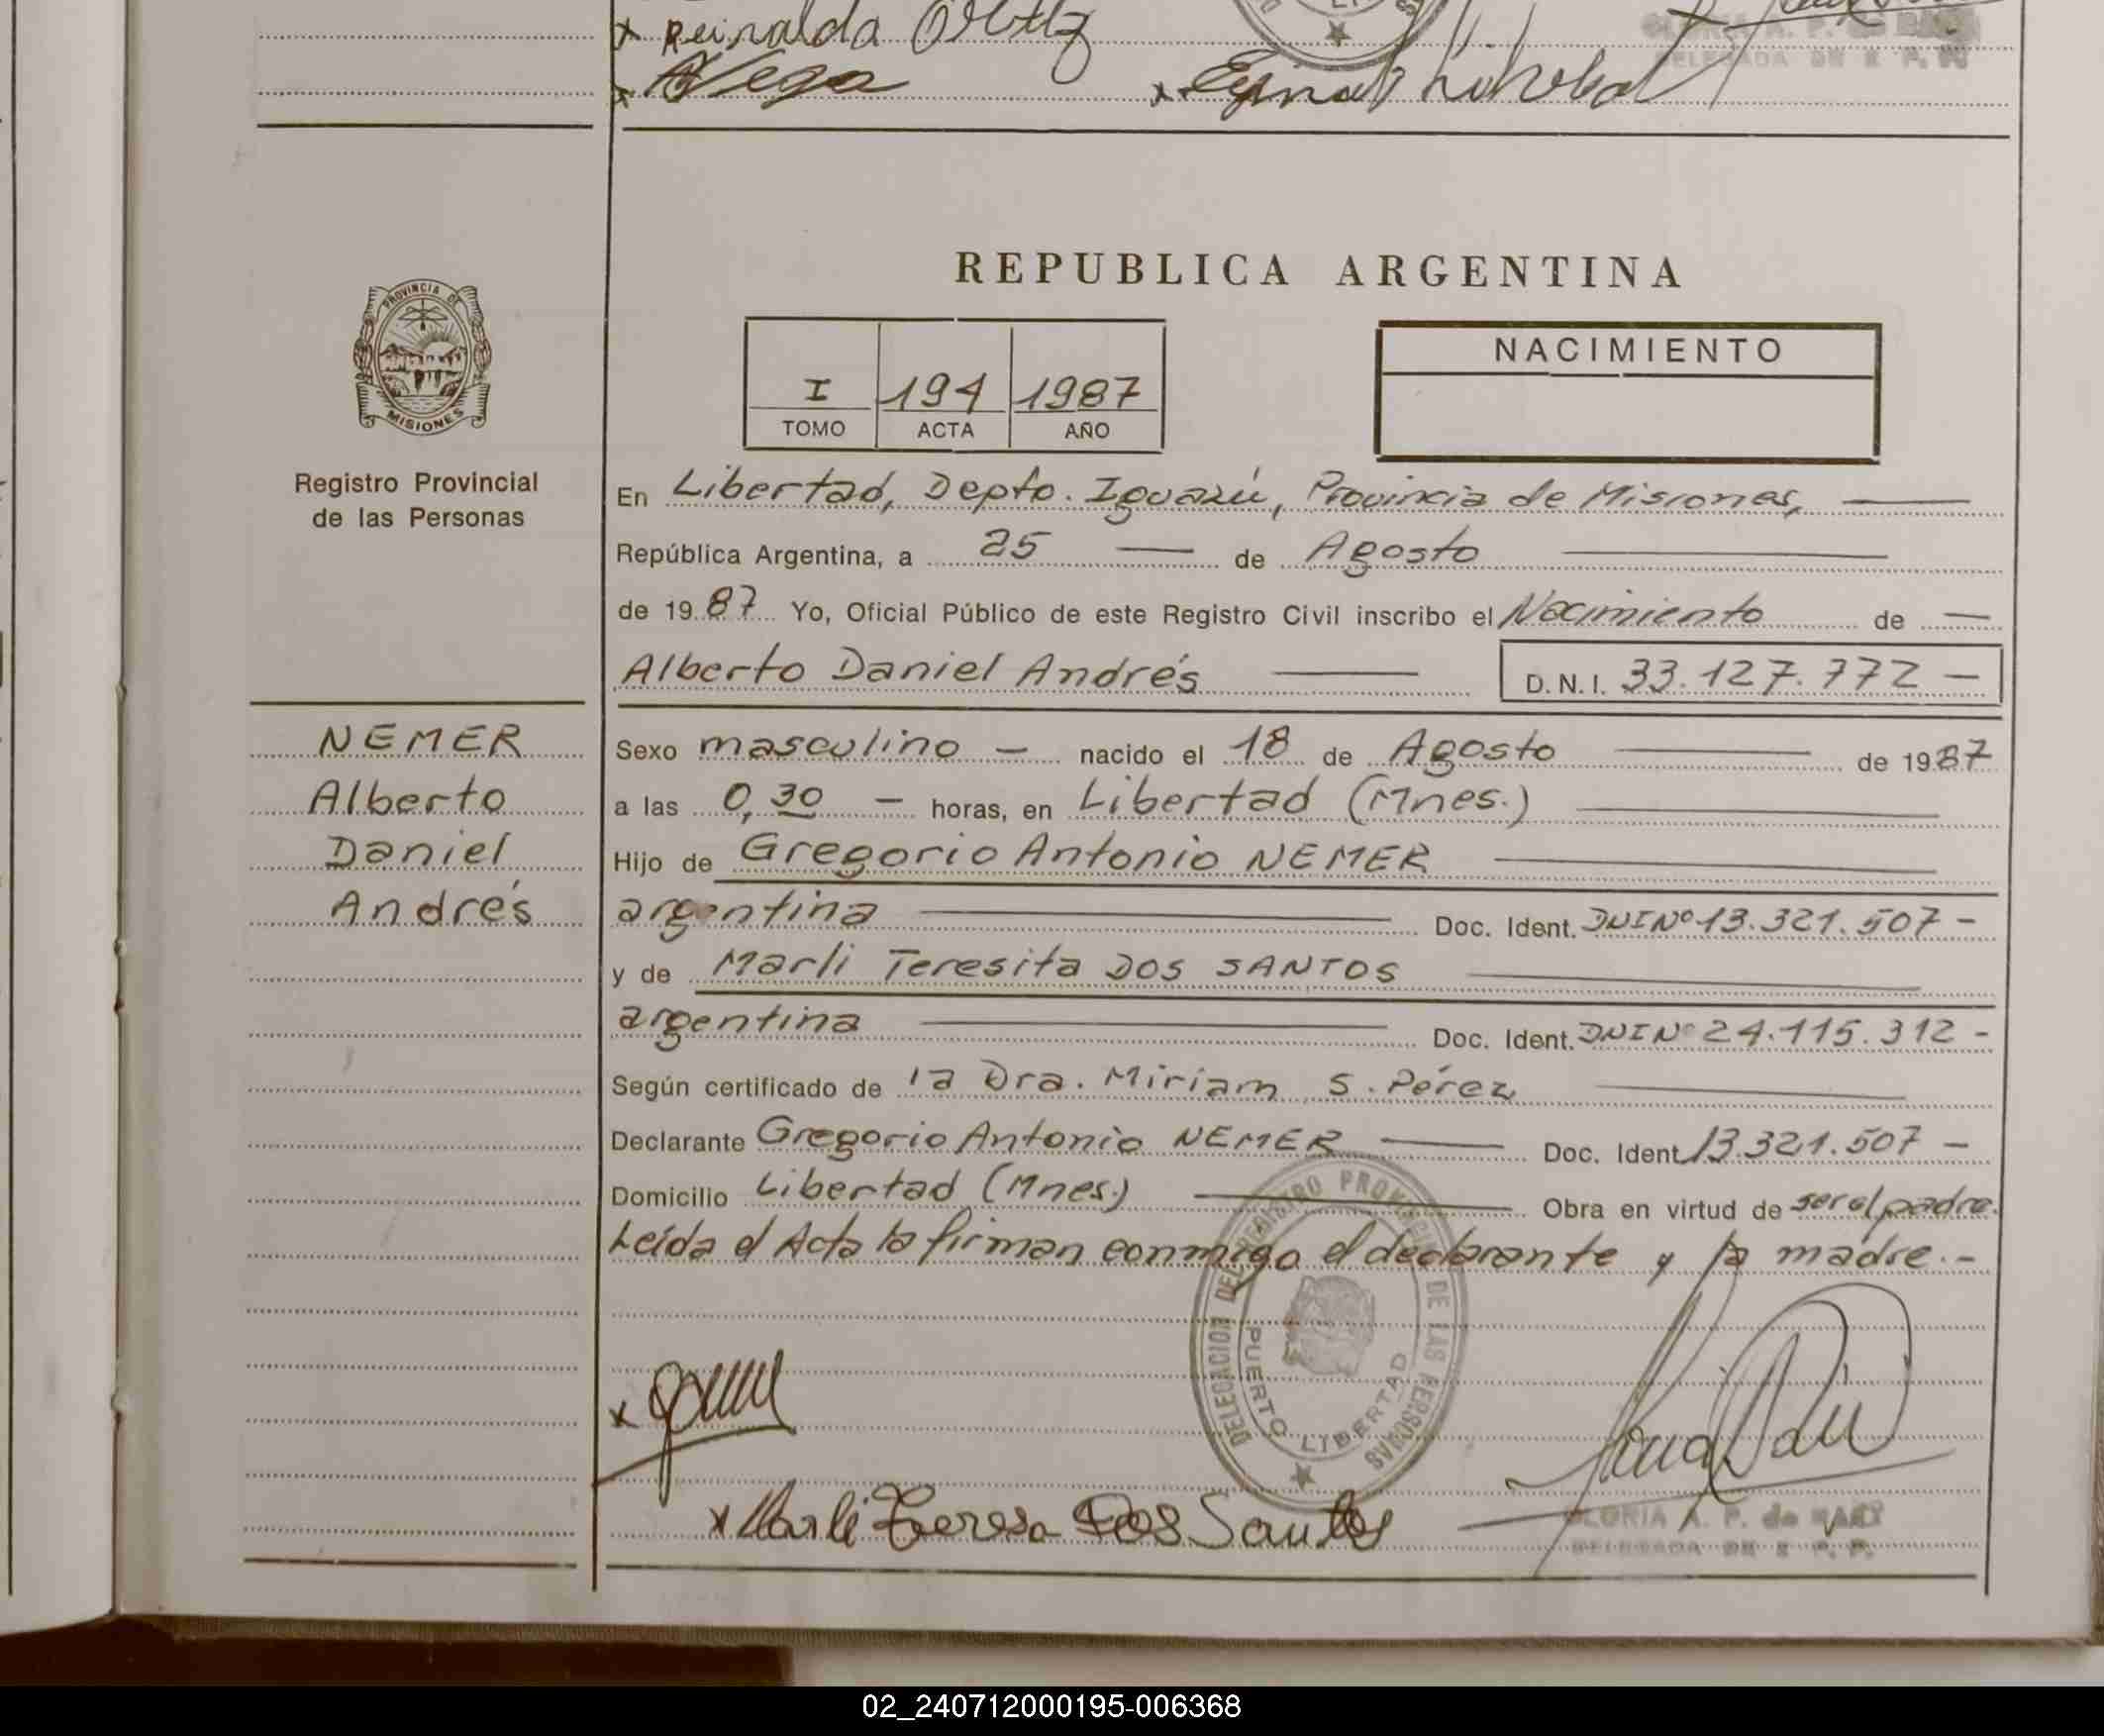 x Reinalda Ortiz
x AVega
DELEGADA DE R. P. P.
REPUBLICA ARGENTINA
PROVINCIA DE MISIONES
I 194 1987
TOMO ACTA AÑO
NACIMIENTO
Registro Provincial
de las Personas
En Libertad, Depto. Iguazú, Provincia de Misiones,
República Argentina, a 25 de Agosto
de 1987 Yo, Oficial Público de este Registro Civil inscribo el Nacimiento de
Alberto Daniel Andrés D.N.I. 33.127.772
NEMER
Alberto
Daniel
Andrés
Sexo masculino nacido el 18 de Agosto de 1987
a las 0,30 horas, en Libertad (Mnes.)
Hijo de Gregorio Antonio NEMER
argentina Doc. Ident. DNI Nº 13.321.507
y de Marli Teresita DOS SANTOS
argentina Doc. Ident. DNI Nº 24.115.312
Según certificado de la Dra. Miriam S. Pérez
Declarante Gregorio Antonio NEMER Doc. Ident. 13.321.507
Domicilio Libertad (Mnes.) Obra en virtud de ser el padre.
Leída el Acta la firman conmigo el declarante y la madre.-
DELEGACION DEL REGISTRO PROVINCIAL DE LAS PERSONAS
PUERTO LIBERTAD
x Marli Teresa Dos Santos
GLORIA A. P. de
DELEGADA DE R. P. P.
02_240712000195-006368